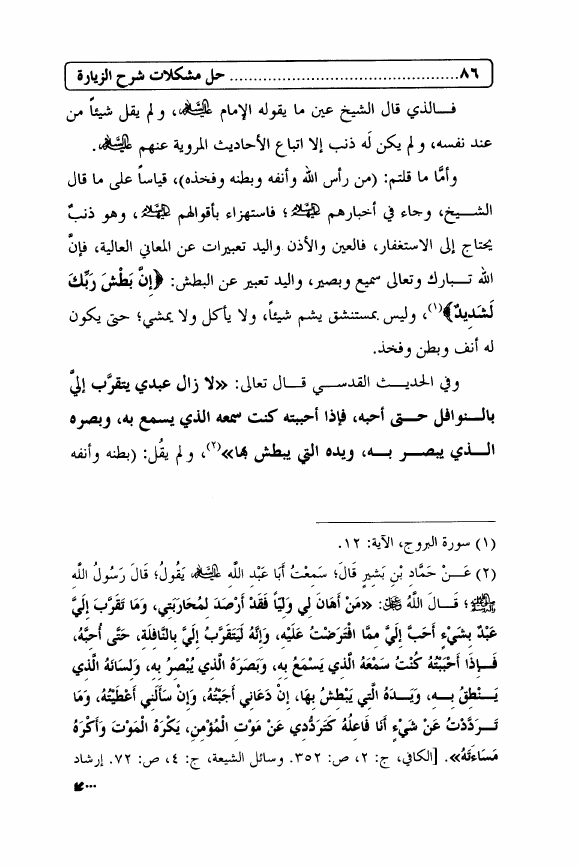 ٨٦ ................................................ حل مشكلات شرح الزيارة
فـالذي قال الشيخ عين ما يقوله الإمام عليه السلام، ولم يقل شيئاً من
عند نفسه، ولم يكن لَه ذنب إلا اتباع الأحاديث المروية عنهم عليهم السلام.
وأمَّا ما قلتم: (من رأس الله وأنفه وبطنه وفخذه)، قياساً على ما قال
الشـيخ، وجاء في أخبارهم عليهم السلام؛ فاستهزاء بأقوالهم عليهم السلام، وهو ذنبٌ
يحتاج إلى الاستغفار، فالعين والأذن واليد تعبيرات عن المعاني العالية، فإنَّ
الله تـبارك وتعالى سميع وبصير، واليد تعبير عن البطش: ﴿إِنَّ بَطْشَ رَبِّكَ
لَشَدِيدٌ﴾(١)، وليس بمستنشق يشم شيئاً، ولا يأكل ولا يمشي؛ حتى يكون
له أنف وبطن وفخذ.
وفي الحديـث القدسـي قـال تعالى: «لا زال عبدي يتقرَّب إليَّ
بالـنوافل حتـى أحبه، فإذا أحببته كنت سمعه الذي يسمع به، وبصره
الـذي يبصـر بـه، ويده التي يبطش بها»(٢)، ولم يقُل: (بطنه وأنفه
(١) سورة البروج، الآية: ١٢.
(٢) عَـنْ حَمَّادِ بْنِ بَشِيرٍ قَالَ؛ سَمِعْتُ أَبَا عَبْدِ اللَّهِ عليه السلام يَقُولُ؛ قَالَ رَسُولُ اللَّهِ
؛ قَـالَ اللَّهُ ﷻ: «مَنْ أَهَانَ لِي وَلِيّاً فَقَدْ أَرْصَدَ لِمُحَارَبَتِي، وَمَا تَقَرَّبَ إِلَيَّ
عَبْدٌ بِشَيْءٍ أَحَبَّ إِلَيَّ مِمَّا افْتَرَضْتُ عَلَيْهِ، وَإِنَّهُ لَيَتَقَرَّبُ إِلَيَّ بِالنَّافِلَةِ، حَتَّى أُحِبَّهُ،
فَـإِذَا أَحْبَبْتُهُ كُنْتُ سَمْعَهُ الَّذِي يَسْمَعُ بِهِ، وَبَصَرَهُ الَّذِي يُبْصِرُ بِهِ، وَلِسَانَهُ الَّذِي
يَـنْطِقُ بِـهِ، وَيَـدَهُ الَّتِي يَبْطِشُ بِهَا، إِنْ دَعَانِي أَجَبْتُهُ، وَإِنْ سَأَلَنِي أَعْطَيْتُهُ، وَمَا
تَـرَدَّدْتُ عَنْ شَيْءٍ أَنَا فَاعِلُهُ كَتَرَدُّدِي عَنْ مَوْتِ الْمُؤْمِنِ، يَكْرَهُ الْمَوْتَ وَأَكْرَهُ
مَسَاءَتَهُ». [الكافي، ج: ٢، ص: ٣٥٢. وسائل الشيعة، ج: ٤، ص: ٧٢. إرشاد
...